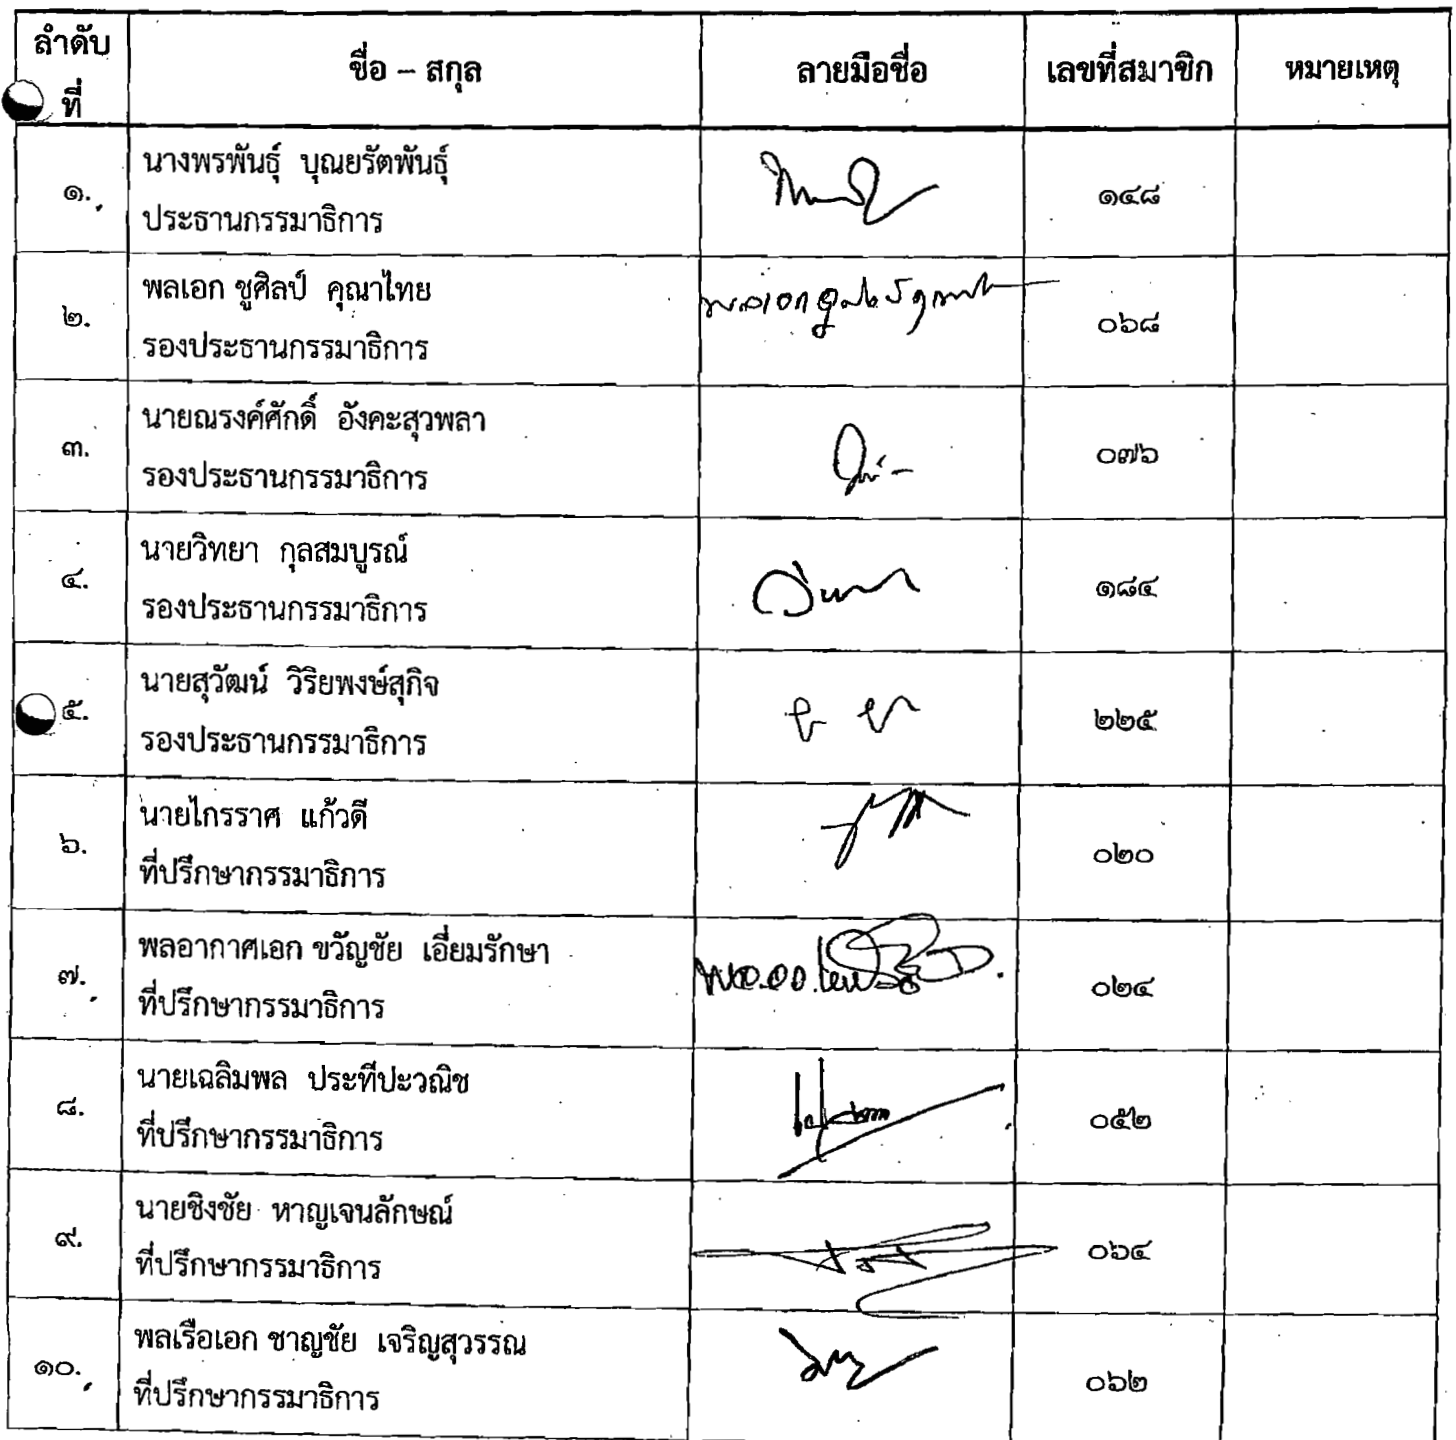 ลำดับที่ ชื่อ – สกุล ลายมือชื่อ เลขที่สมาชิก หมายเหตุ
๑. นางพรพันธุ์ บุณยรัตพันธุ์ ๑๔๘
ประธานกรรมาธิการ
๒. พลเอก ชูศิลป์ คุณาไทย ๐๖๘
รองประธานกรรมาธิการ
๓. นายณรงค์ศักดิ์ อังคะสุวพลา ๐๗๖
รองประธานกรรมาธิการ
๔. นายวิทยา กุลสมบูรณ์ ๑๘๔
รองประธานกรรมาธิการ
๕. นายสุวัฒน์ วิริยพงษ์สุกิจ ๒๒๕
รองประธานกรรมาธิการ
๖. นายไกรราศ แก้วดี ๐๒๐
ที่ปรึกษากรรมาธิการ
๗. พลอากาศเอก ขวัญชัย เอี่ยมรักษา ๐๒๔
ที่ปรึกษากรรมาธิการ
๘. นายเฉลิมพล ประทีปะวณิช ๐๕๒
ที่ปรึกษากรรมาธิการ
๙. นายชิงชัย หาญเจนลักษณ์ ๐๖๔
ที่ปรึกษากรรมาธิการ
๑๐. พลเรือเอก ชาญชัย เจริญสุวรรณ ๐๖๒
ที่ปรึกษากรรมาธิการ